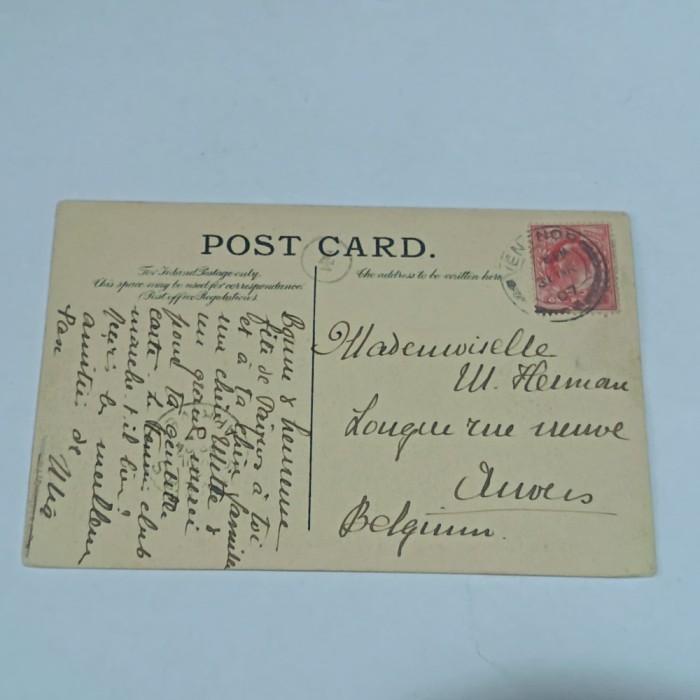 POST CARD.
For Inland Postage only.
This space may be used for correspondence.
(Post office Regulations).
The address to be written here
VENTNOR
07
Bonne & heureuse
fête de Pâques à toi
et à ta chère famille
une chère &
un grand merci
pour ta gentille
carte. Le Tennis club
marche t'il bien?
meilleur
amitiés de
Mademoiselle
M. Herman
Longue rue neuve
Anvers
Belgium.